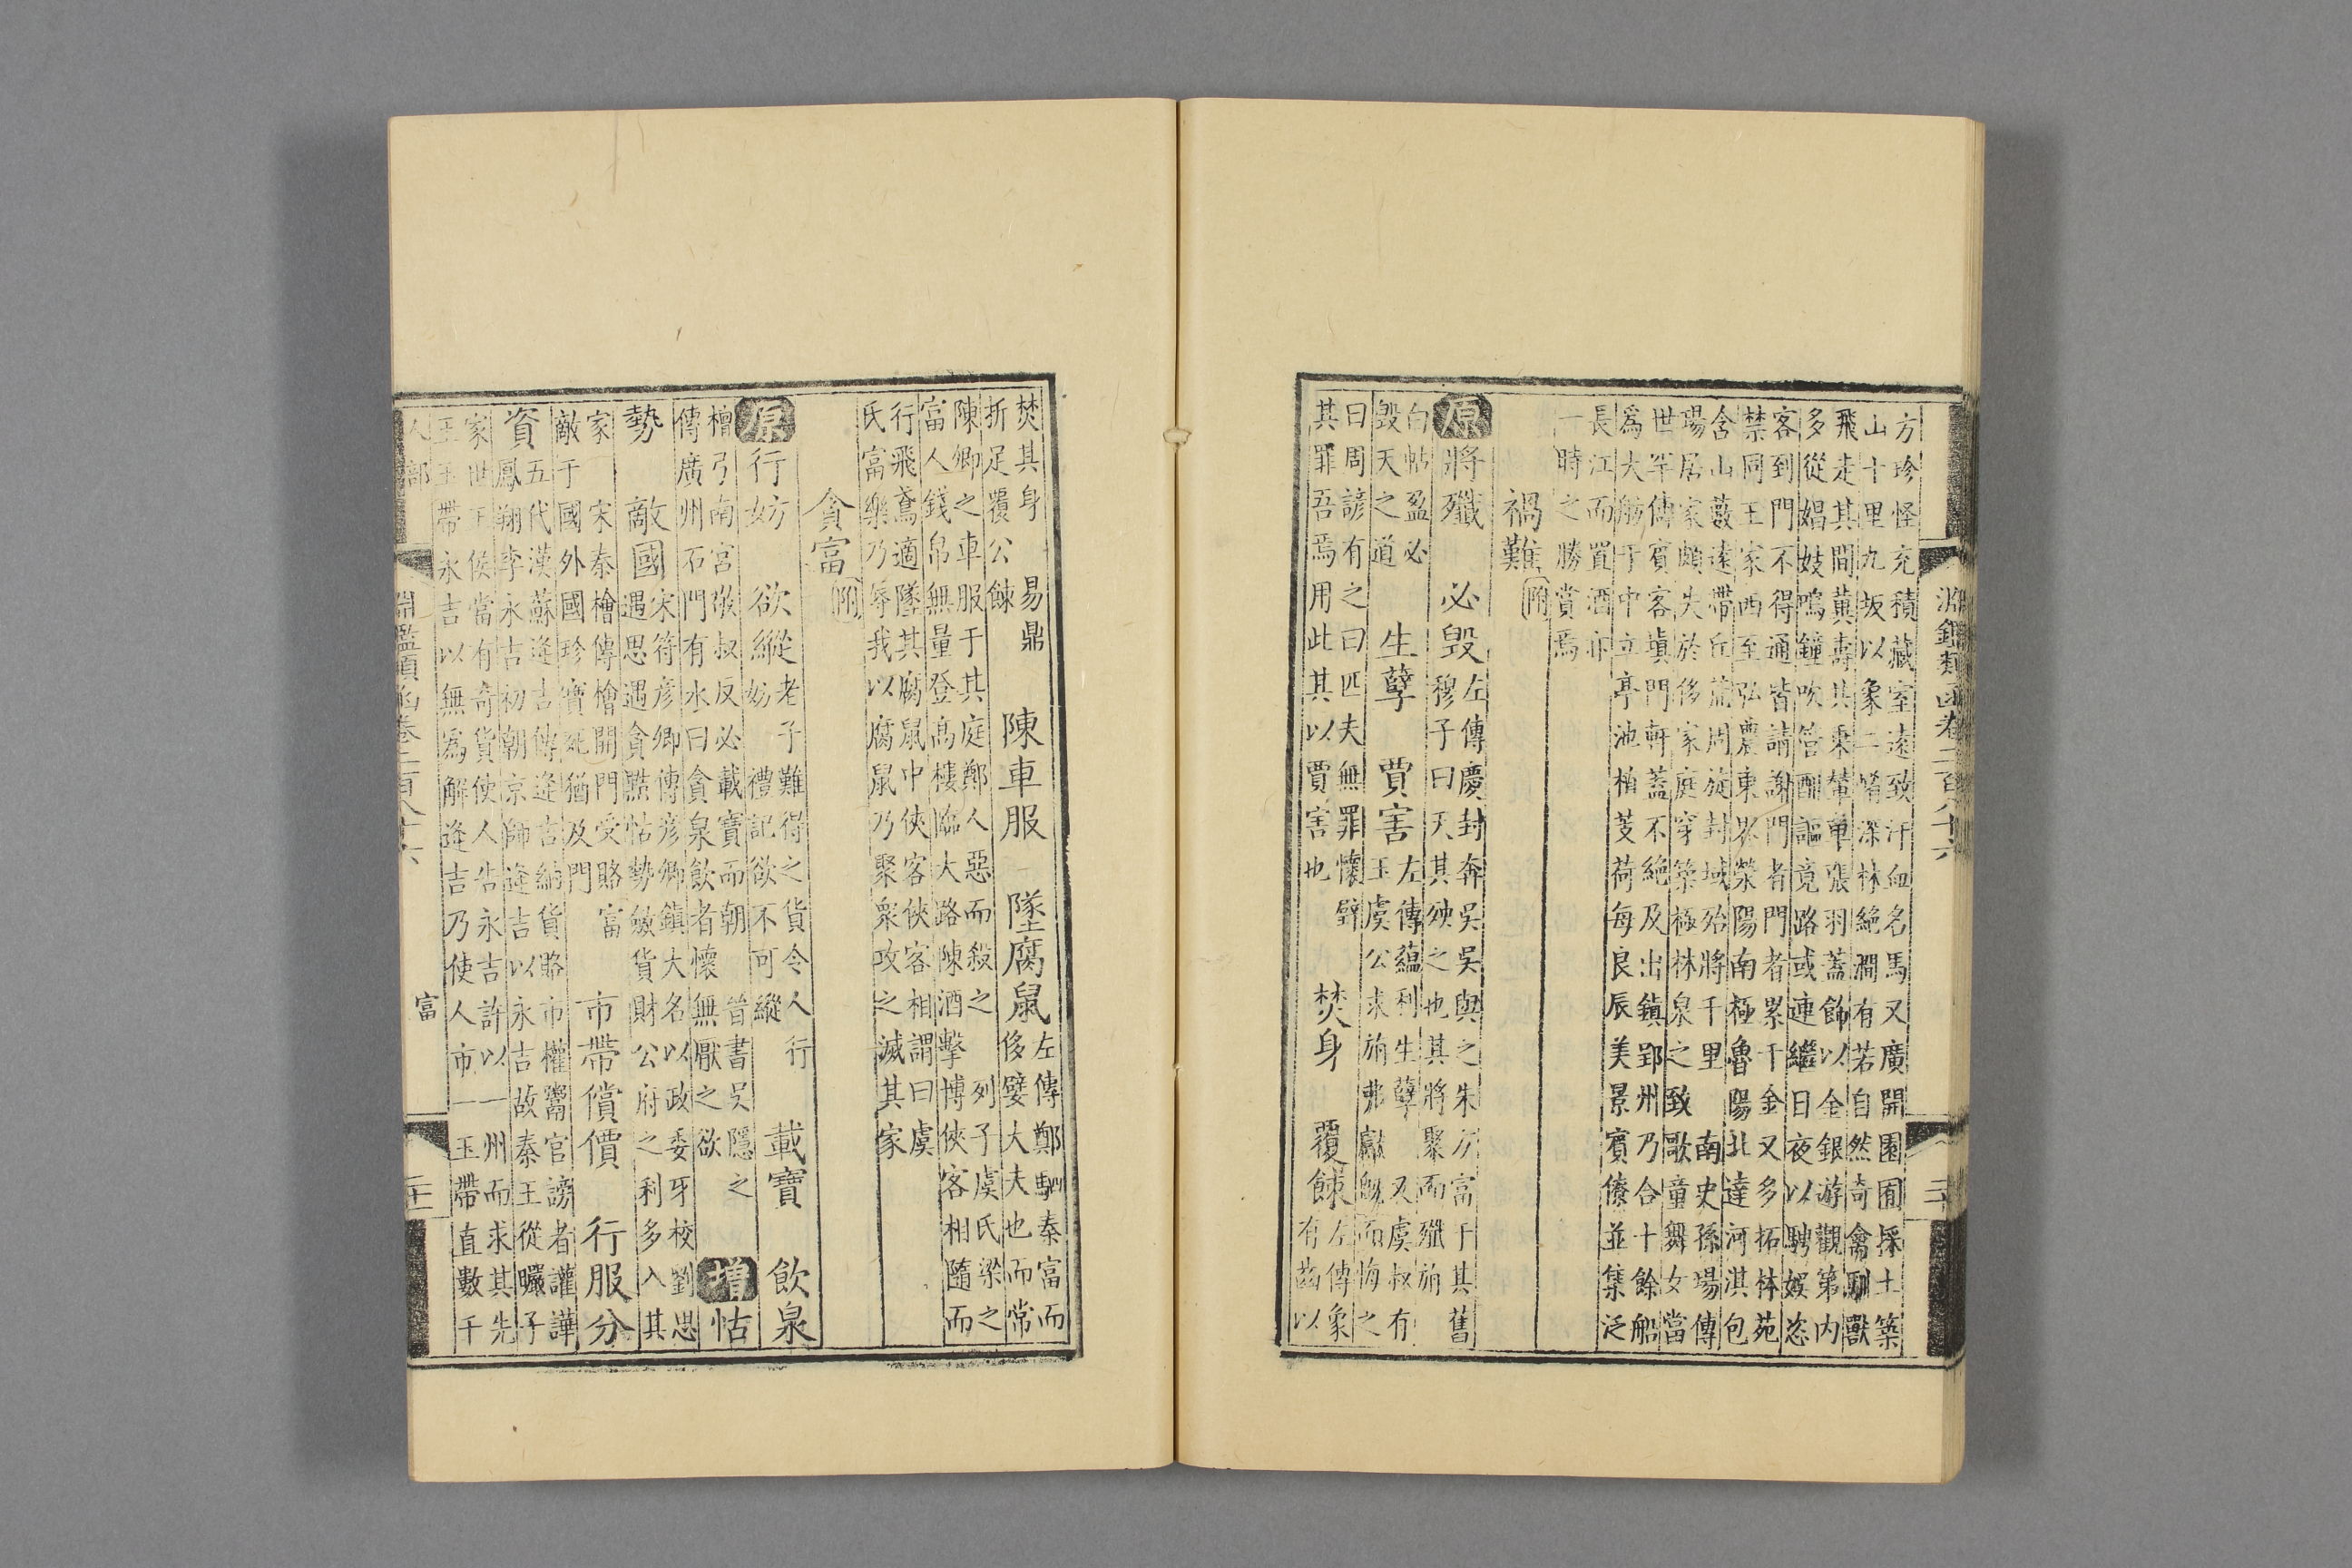 淵鑑類函卷二百八十六 二十
方珍怪充積藏室遠致汗血名馬又廣開園囿採土築
山十里九坂以象二崤深林絕澗有若自然奇禽馴獸
飛走其間冀壽共乘輦車張羽蓋飾以金銀游觀第內
多從娼妓鳴鐘吹管酣謳竟路或連繼日夜以騁娛恣
客到門不得通皆請謝門者門者累千金又多拓林苑
禁同王家西至弘農東界滎陽南極魯陽北達河淇包
含山藪遠帶丘荒周旋封域殆將千里 南史孫瑒傳
瑒居家頗失於侈家庭穿築極林泉之致歌童舞女當
世罕儔賓客填門軒蓋不絕及出鎮郢州乃合十餘船
為大舫于中立亭池植芰荷每良辰美景賓僚並集泛
長江而置酒亦
一時之勝賞焉
禍難附
原將殲 必毀 左傳慶封奔吳吳與之朱方富于其舊
穆子曰天其殃之也其將聚而殲旃
白帖盈必
毀天之道
生孽 賈害 左傳蘊利生孽 又虞叔有
玉虞公求旃弗獻既而悔之
曰周諺有之曰匹夫無罪懷璧
其罪吾焉用此其以賈害也
焚身 覆餗 左傳象
有齒以
焚其身 易鼎
折足覆公餗
陳車服 墜腐鼠 左傳鄭駟秦富而
侈嬖大夫也而常
陳卿之車服于其庭鄭人惡而殺之 列子虞氏梁之
富人錢帛無量登高樓臨大路陳酒擊博俠客相隨而
行飛鳶適墜其腐鼠中俠客俠客相謂曰虞
氏富樂乃辱我以腐鼠乃聚衆攻之滅其家
貪富附
原行妨 欲縱 老子難得之貨令人行
妨 禮記欲不可縱
載寶 飲泉
檀弓南宮敬叔反必載寶而朝 晉書吳隱之
傳廣州石門有水曰貪泉飲者懷無厭之欲
增怙
勢 敵國 宋符彥卿傳彥卿鎮大名以政委牙校劉思
遇思遇貪黠怙勢斂貨財公府之利多入其
家 宋秦檜傳檜開門受賂富
敵于國外國珍寶死猶及門
市帶償價 行服分
資 五代漢蘇逢吉傳逢吉納貨賂市權鬻官謗者讙譁
鳳翔李永吉初朝京師逢吉以永吉故秦王從曮子
家世王侯當有奇貨使人告永吉許以一州而求其先
王玉帶永吉以無為解逢吉乃使人市一玉帶直數千
人部 淵鑑類函卷二百八十六 富 二十一